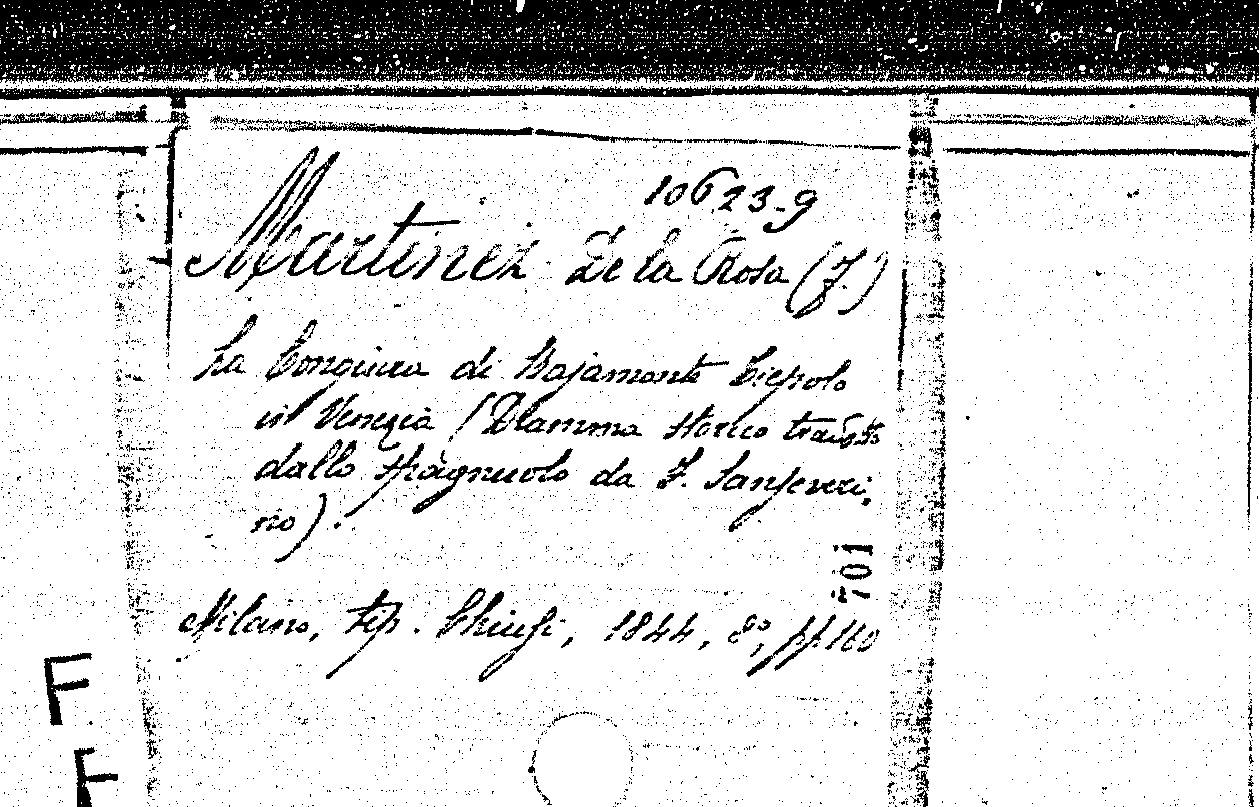 10623-9
Martinez De la Rosa (F.)
La Congiura di Bajamonte Tiepolo
in Venezia (Dramma storico tradotto
dallo Spagnuolo da F. Sanseveri,
no).
701
Milano, tip. Chiusi, 1844, 8º, pp. 160
F
F